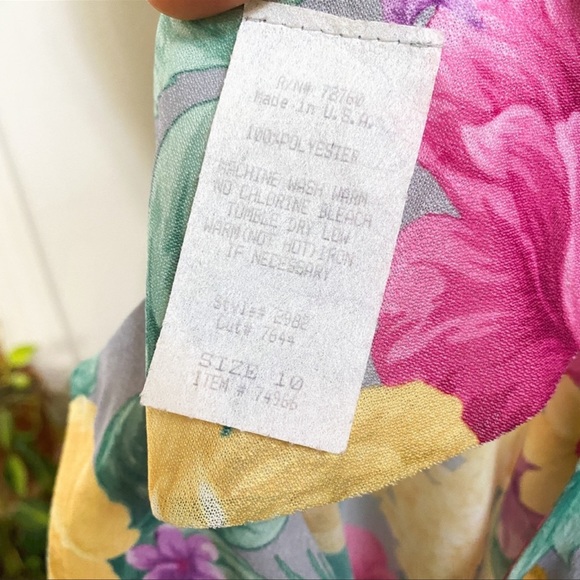 R/N# 72760
Made in U.S.A.
100%POLYESTER
MACHINE WASH WARM
NO CALORINE BLEACH
TUMBLE DRY LOW
WARM(NOT HOT)IRON
IF NECESSARY
Style# 2982
Cut# 7644
SIZE 10
ITEM # 74966